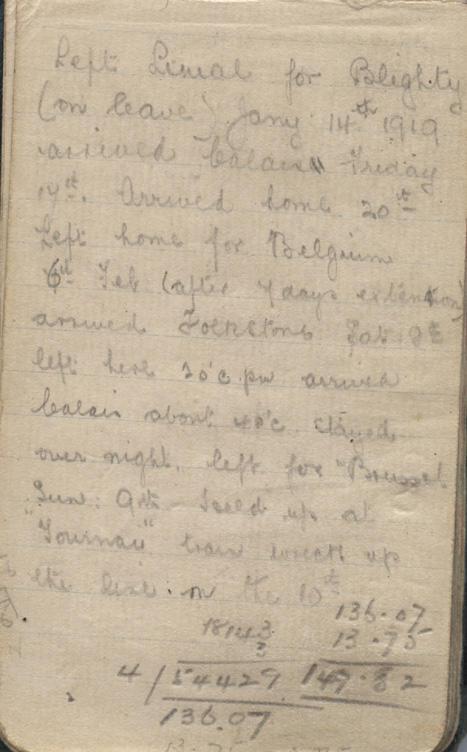 Left Linial for Blighty
(on leave) Jany 14th 1919
arrived Calais Friday
17th. Arrived home 20th
Left home for Belgium
6th Feb (after 7 days extention)
arrived Folkstone Sat 8th
left here 2 o'c pm arrived
Calais about 4 o'c stayed
over night, left for "Brussel
Sun: 9th held up at
"Tournai" train wreck up
the line on the 10th
136.07
18143 13.75
3
4 / 54429 149.82
136.07
13.75